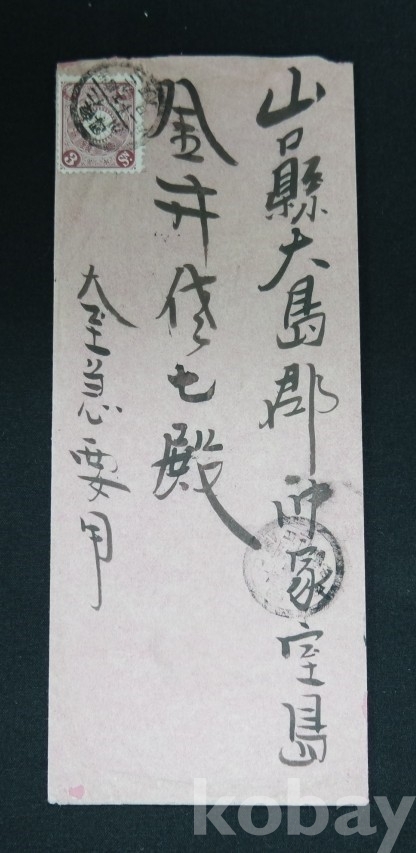 山口縣大島郡沖家室島
金井佐七殿
大至急要用
3
kobay